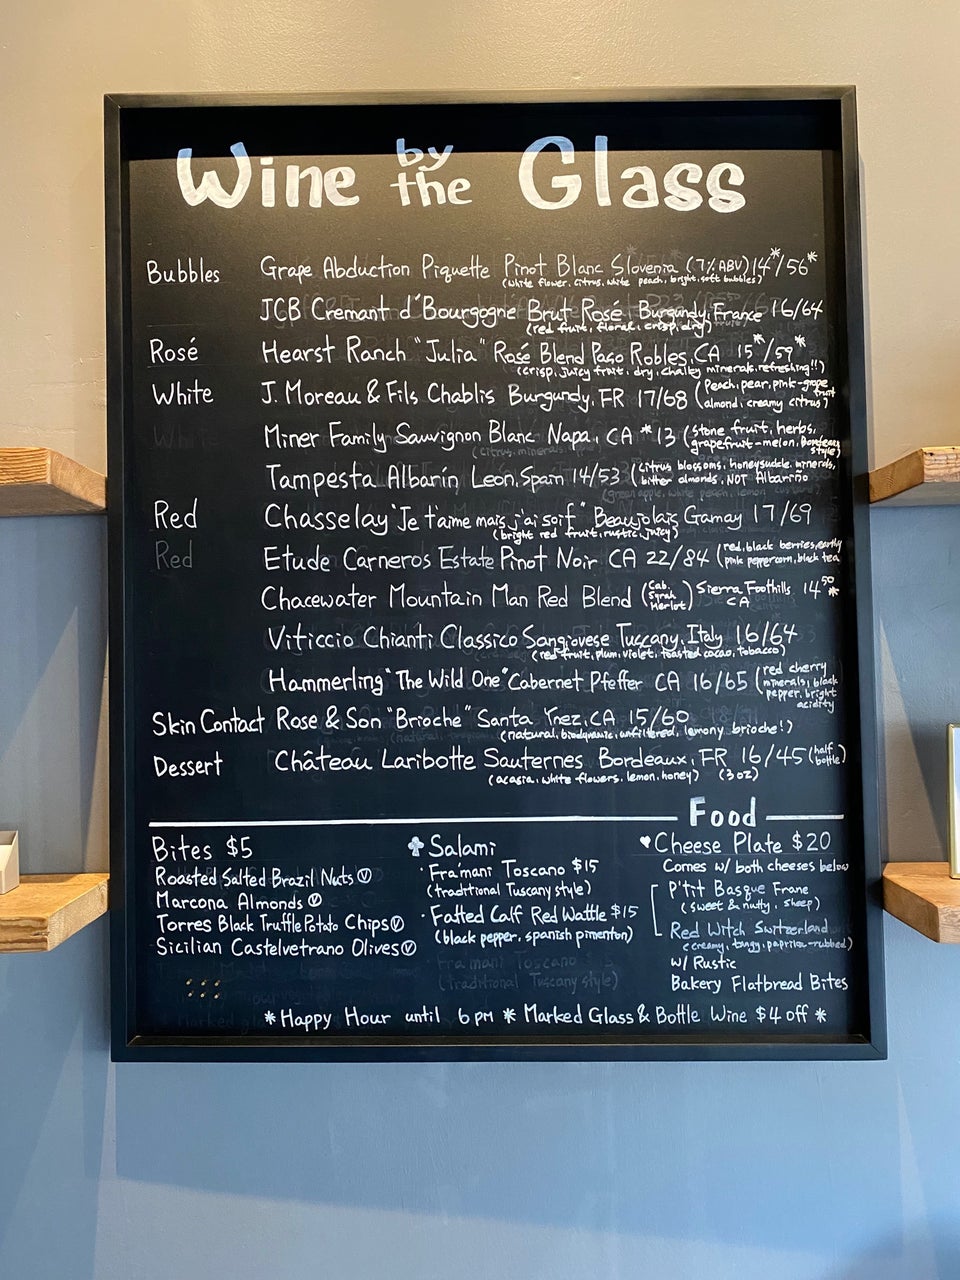 Wine by the Glass
Bubbles Grape Abduction Piquette Pinot Blanc Slovenia (7% ABV) 14*/56*
(white flower, citrus, white peach, bright, soft bubbles)
JCB Cremant d'Bourgogne Brut Rosé Burgundy, France 16/64
(red fruit, floral, crisp, dry)
Rosé Hearst Ranch "Julia" Rosé Blend Paso Robles, CA 15*/59*
(crisp, juicy fruit, dry, chalky minerals, refreshing!!)
White J. Moreau & Fils Chablis Burgundy, FR 17/68 (Peach, pear, pink-grapefruit
almond, creamy citrus)
White Miner Family Sauvignon Blanc Napa, CA *13 (stone fruit, herbs,
grapefruit-melon, bordeaux style)
Tampesta Albarín Leon, Spain 14/53 (citrus blossoms, honeysuckle, minerals,
bitter almonds, NOT Albariño
Red Chasselay "Je t'aime mais j'ai soif" Beaujolais Gamay 17/69
(bright red fruit, rustic, juicy)
Red Etude Carneros Estate Pinot Noir CA 22/84 (red, black berries, earthy
pink peppercorn, black tea
Chacewater Mountain Man Red Blend (Cab. Syrah Merlot) Sierra Foothills CA 14⁵⁰*
Viticcio Chianti Classico Sangiovese Tuscany, Italy 16/64
(red fruit, plum, violet, toasted cacao, tobacco)
Hammerling "The Wild One" Cabernet Pfeffer CA 16/65 (red cherry
minerals, black
pepper, bright
acidity
Skin Contact Rose & Son "Brioche" Santa Ynez, CA 15/60
(natural, biodynamic, unfiltered, lemony brioche!)
Dessert Château Laribotte Sauternes Bordeaux, FR 16/45 (half bottle)
(acasia, white flowers, lemon, honey) (3 oz)
Food
Bites $5
Roasted Salted Brazil Nuts Ⓥ
Marcona Almonds Ⓥ
Torres Black Truffle Potato Chips Ⓥ
Sicilian Castelvetrano Olives Ⓥ
♣ Salami
· Fra'mani Toscano $15
(traditional Tuscany style)
· Fatted Calf Red Wattle $15
(black pepper, spanish pimenton)
Fra'mani Toscano
(Traditional Tuscany style)
♥ Cheese Plate $20
Comes w/ both cheeses below
P'tit Basque Frane
(sweet & nutty, sheep)
Red Witch Switzerland
(creamy, tangy, paprika-rubbed)
w/ Rustic
Bakery Flatbread Bites
* Happy Hour until 6 PM * Marked Glass & Bottle Wine $4 off *